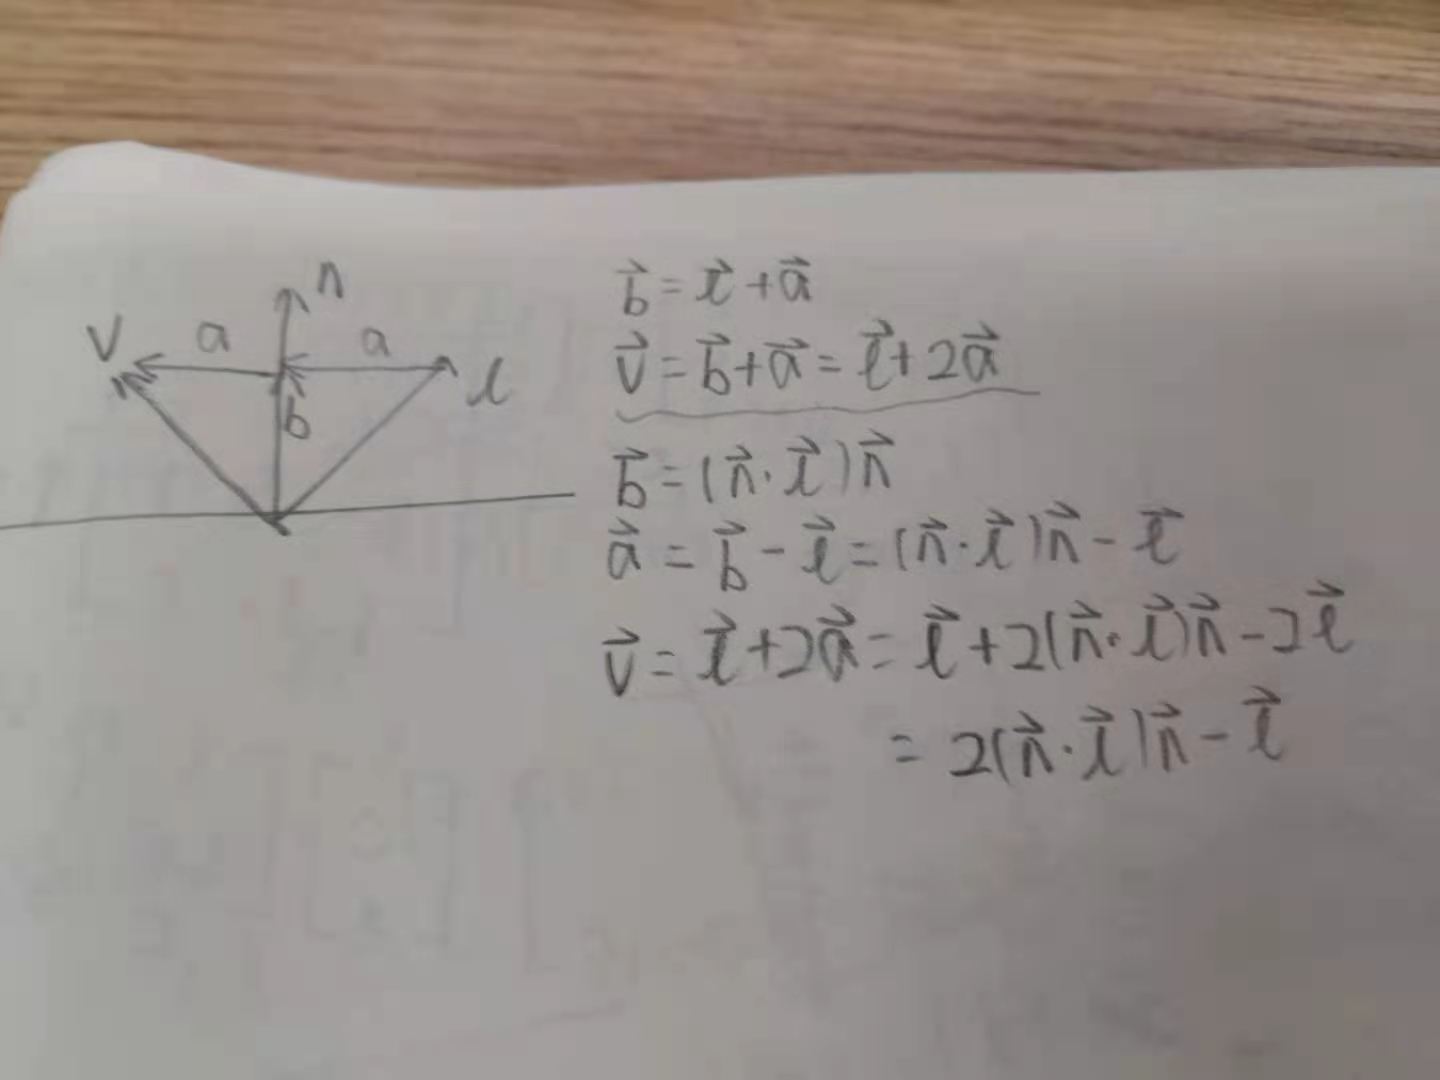 n
V a a l
b
b⃗ = l⃗ + a⃗
v⃗ = b⃗ + a⃗ = l⃗ + 2a⃗
b⃗ = (n⃗ · l⃗)n⃗
a⃗ = b⃗ - l⃗ = (n⃗ · l⃗)n⃗ - l⃗
v⃗ = l⃗ + 2a⃗ = l⃗ + 2(n⃗ · l⃗)n⃗ - 2l⃗
= 2(n⃗ · l⃗)n⃗ - l⃗